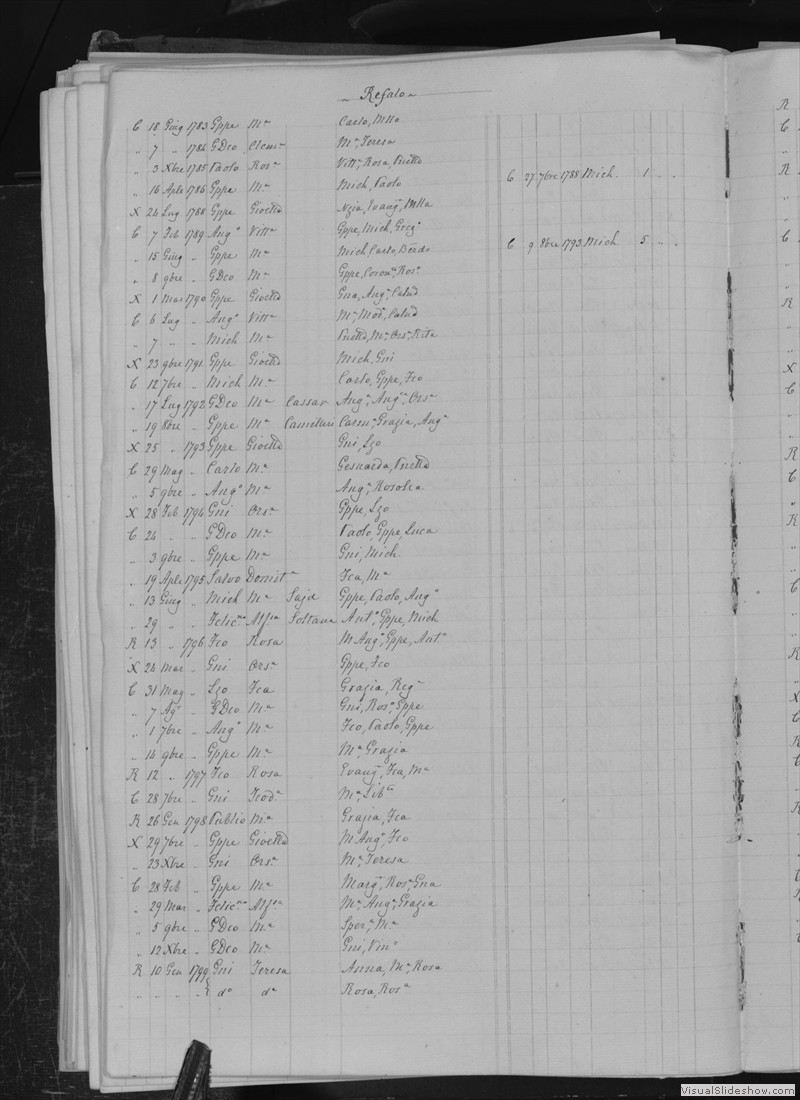 Refalo
C 18 Giug 1783 Gppe Ma Carlo, Mlla
" 7 " 1784 GDeo Clema Ma, Teresa
" 3 Xbre 1785 Paolo Rosa Vitta, Rosa, Puella
" 16 Aple 1786 Gppe Ma Mich, Paolo
C 27 7bre 1788 Mich. 1 " "
X 24 Lug 1788 Gppe Gioetta Nzia, Evanga, Mlla
C 7 Feb 1789 Ango Vitta Gppe, Mich, Grego
C 9 8bre 1793 Mich 5 " "
" 15 Giug " Gppe Ma Mich, Carlo, Berdo
" 8 9bre " GDeo Ma Gppe, Corona, Rosa
X 1 Mar 1790 Gppe Gioetta Gna, Anga, Calud
C 6 Lug " Ango Vitta Ma, Calud
" 7 " " Mich Ma Ma, Orsa, Rita
X 23 9bre 1791 Gppe Gioetta Mich, Gni
C 12 7bre " Mich Ma Carlo, Gppe, Fco
" 17 Lug 1792 GDeo Ma Cassar Ango, Anga, Orsa
" 19 8bre " Gppe Ma Camelleri Carma, Grazia, Anga
X 25 " 1793 Gppe Gioetta Gni, Lzo
C 29 Mag " Carlo Ma Gesuarda
" 5 9bre " Ango Ma Anga, Rosolea
X 28 Feb 1794 Gni Orsa Gppe, Lzo
C 24 " " GDeo Ma Paolo, Gppe, Luca
" 3 9bre " Gppe Ma Gni, Mich
" 19 Aple 1795 Salvo Domit Fca, Ma
" 13 Giug " Mich Ma Sajd Gppe, Paolo, Ango
" 29 " " Felicmo Alfsa Soltana Anto, Gppe, Mich
R 13 " 1796 Fco Rosa M Anga, Gppe, Anta
X 24 Mar " Gni Orsa Gppe, Fco
C 31 Mag " Lzo Fca Grazia, Rega
" 7 Ago " GDeo Ma Gni, Rosa, Gppe
" 1 7bre " Ango Ma Fco, Paolo, Gppe
" 14 9bre " Gppe Ma Ma, Grazia
R 12 " 1797 Fco Rosa Evanga, Fca, Ma
C 28 7bre " Gni Teoda Ma, Liba
R 26 Gen 1798 Publio Ma Grazia, Fca
X 29 7bre " Gppe Gioetta M Anga, Fco
" 23 Xbre " Gni Orsa Ma, Teresa
C 28 Feb " Gppe Ma Marga, Rosa, Gna
" 29 Mar " Felicmo Alfsa Ma, Anga, Grazia
" 5 9bre " GDeo Ma Spera, Ma
" 12 Xbre " GDeo Ma Gni, Vino
R 10 Gen 1799 Gni Teresa Anna, Ma, Rosa
" " " " do da Rosa, Rosa
VisualSlideshow.com